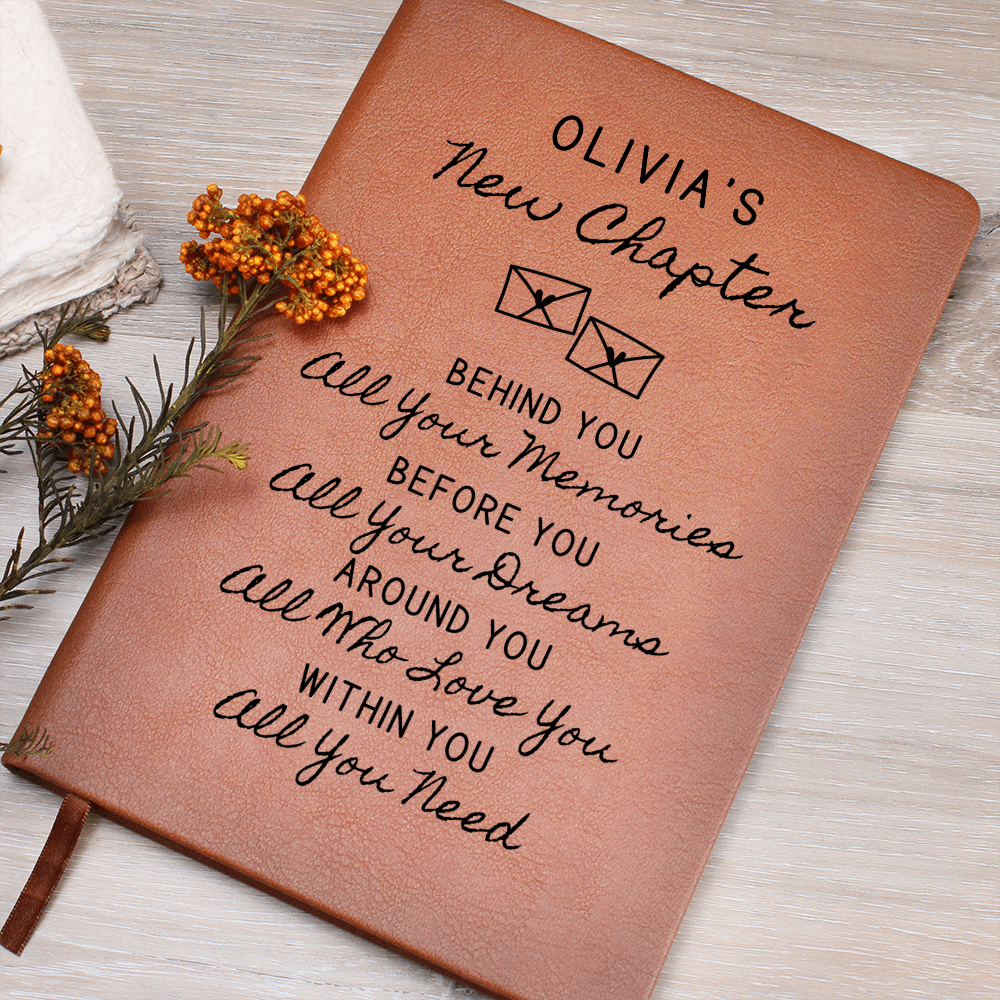 OLIVIA'S
New Chapter
BEHIND YOU
All Your Memories
BEFORE YOU
All Your Dreams
AROUND YOU
All Who Love You
WITHIN YOU
All You Need